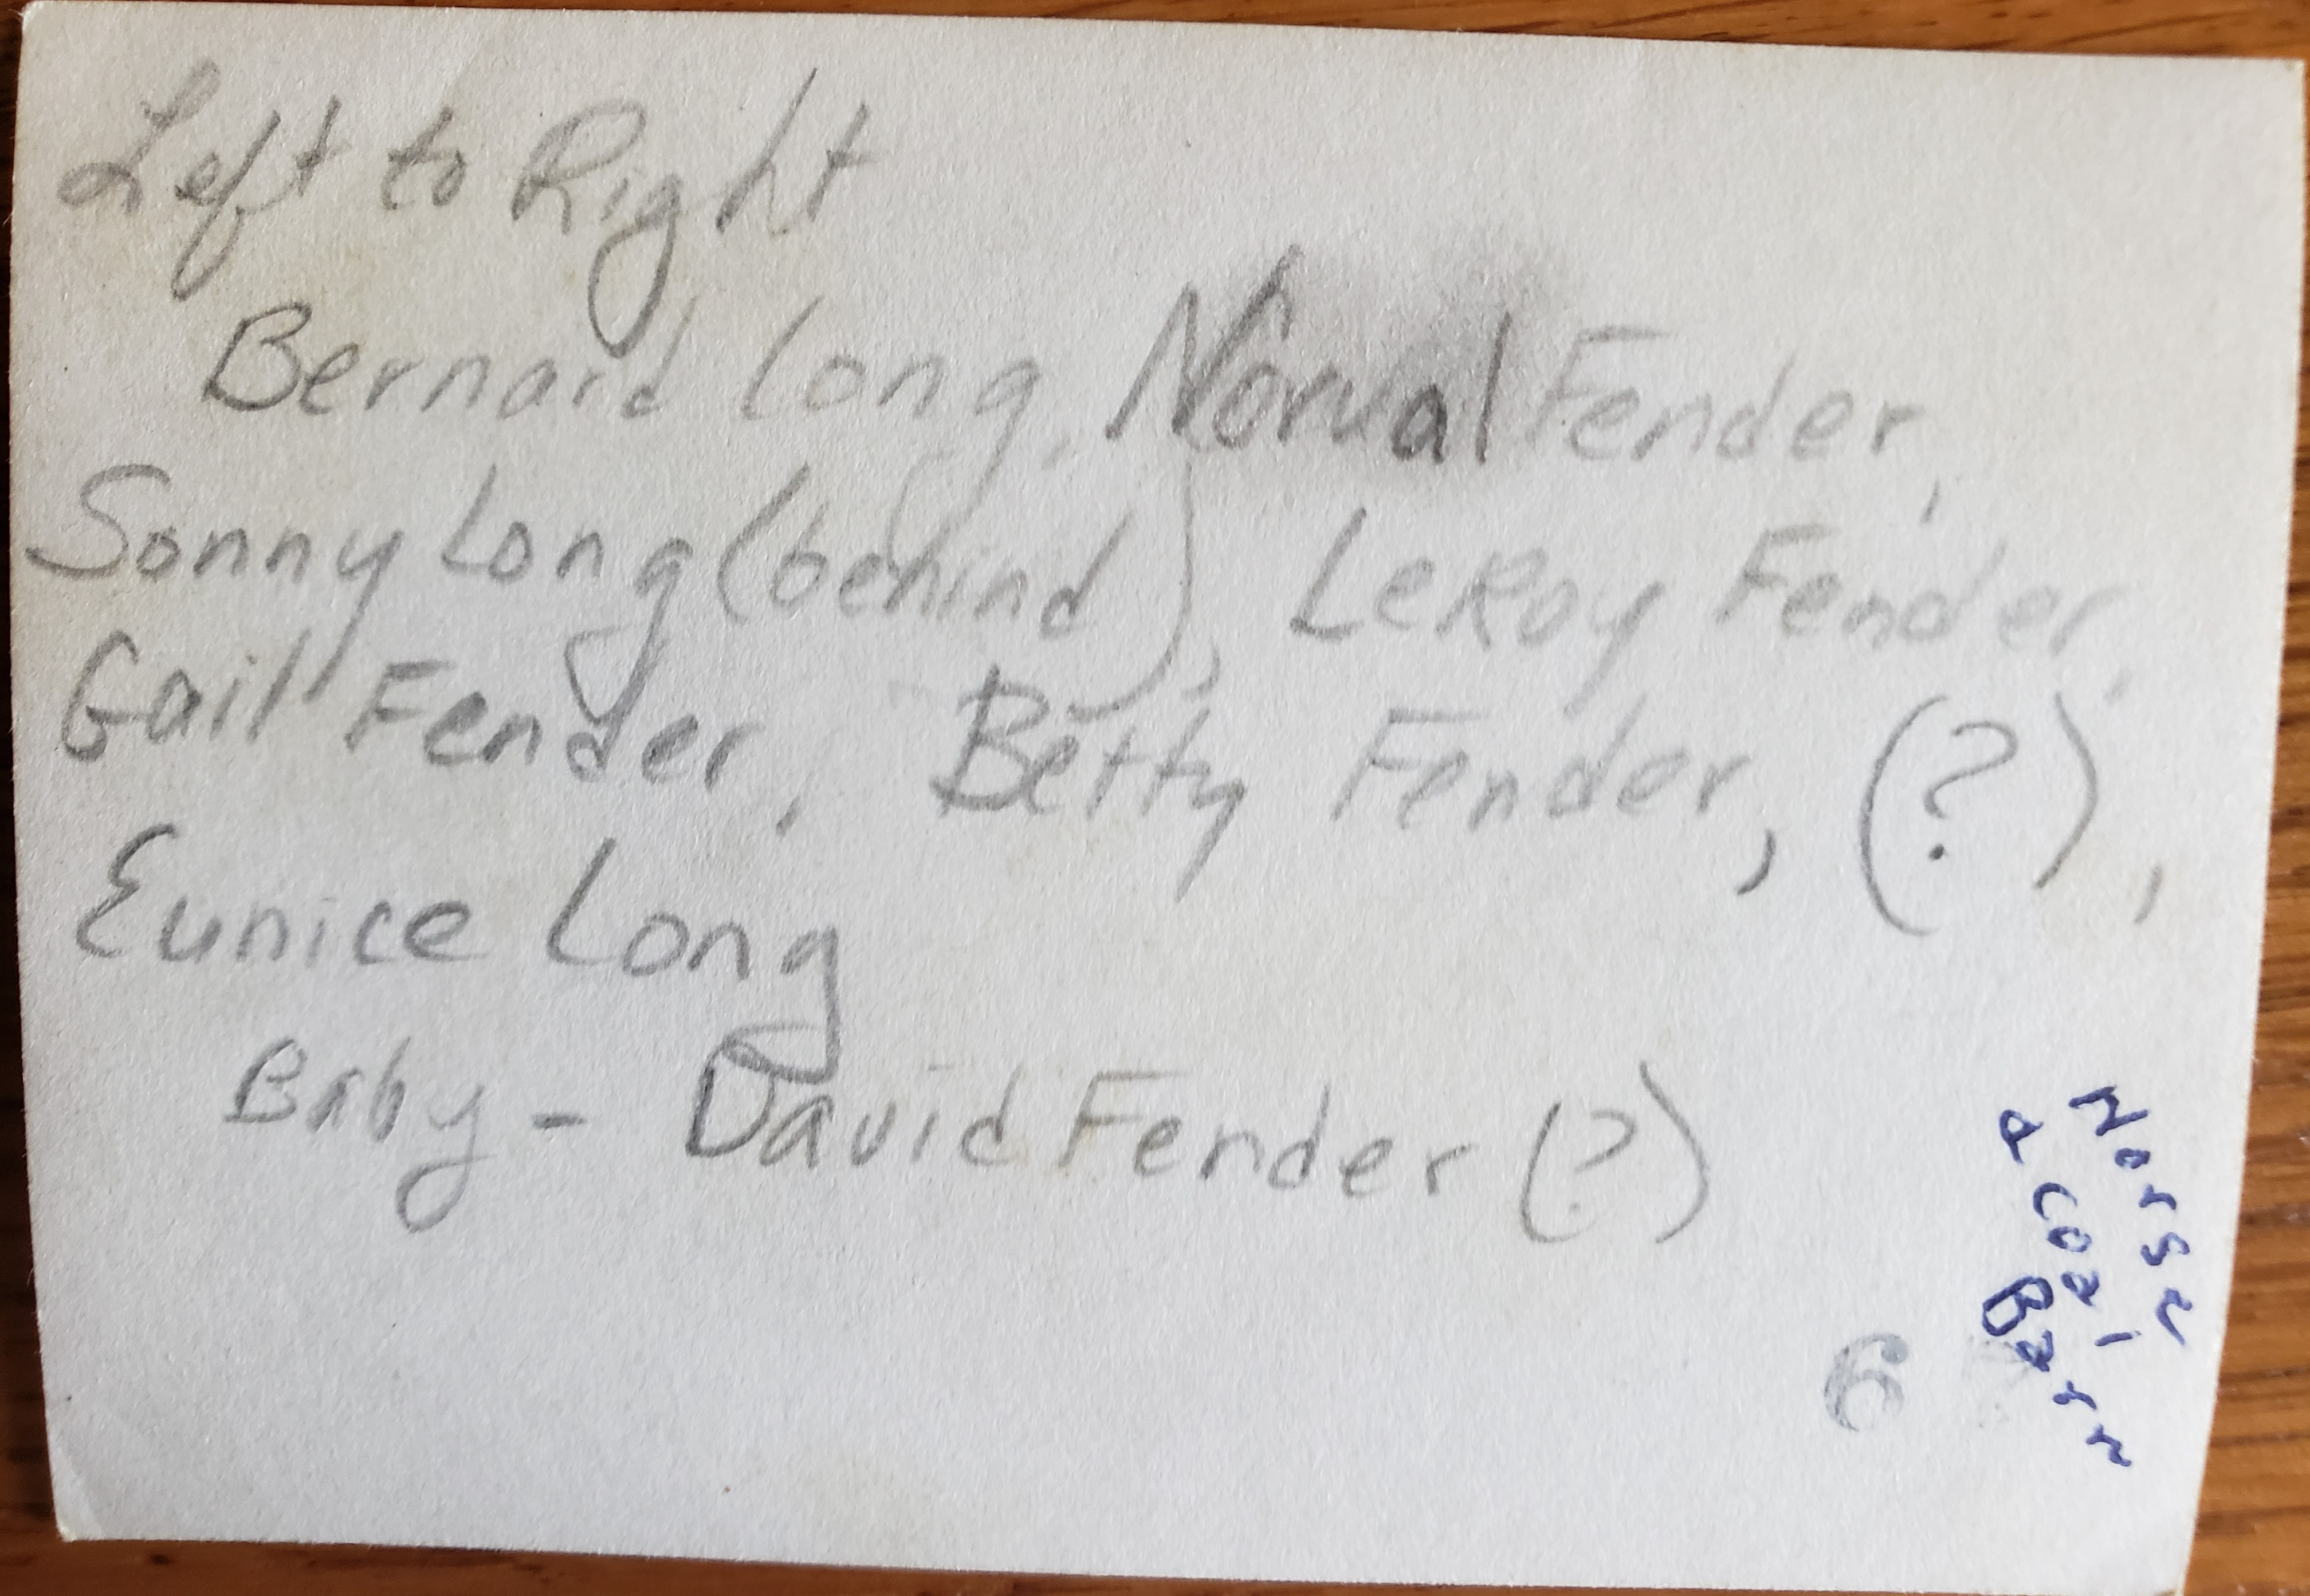 Left to Right
Bernard Long, Norval Fender,
Sonny Long (behind), LeRoy Fender,
Gail Fender, Betty Fender, (?),
Eunice Long
Baby - David Fender (?)
6